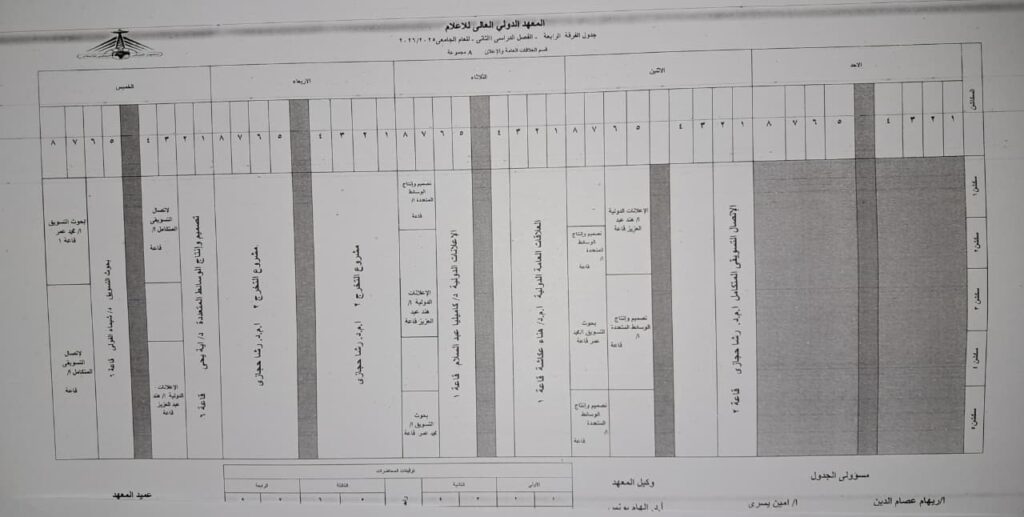 المعهد الدولى العالى للاعلام
جدول الفرقة الرابعة - الفصل الدراسى الثانى - للعام الجامعى ٢٠٢٦/٢٠٢٥
قسم العلاقات العامة والإعلان ٨ مجموعة
السكاشن الاحد الاثنين الثلاثاء الاربعاء الخميس
١ ٢ ٣ ٤ ٥ ٦ ٧ ٨ ١ ٢ ٣ ٤ ٥ ٦ ٧ ٨ ١ ٢ ٣ ٤ ٥ ٦ ٧ ٨ ١ ٢ ٣ ٤ ٥ ٦ ٧ ٨ ١ ٢ ٣ ٤ ٥ ٦ ٧ ٨
سكشن ١
سكشن ٢
سكشن ٣
سكشن ٤
سكشن ٥
الإتصال التسويقى المتكامل ا.م.د. رشا حجازى قاعة ٢
الإعلانات الدولية
ا/ هند عبد
العزيز قاعة
تصميم وإنتاج
الوسائط المتعددة
ا/
تصميم وإنتاج
الوسائط
المتعددة
قاعة
بحوث
التسويق
عمر قاعة
تصميم وإنتاج
الوسائط
المتعددة
ا/
قاعة
العلاقات العامة الدولية ا.م.د/ هناء عكاشة قاعة ١
الإعلانات الدولية د/ كاميليا عبد السلام قاعة ١
تصميم وإنتاج
الوسائط
المتعددة ا/
قاعة
الإعلانات
الدولية ا/
هند عبد
العزيز قاعة
بحوث
التسويق ا/
عمر قاعة
مشروع التخرج ٢ ا.م.د. رشا حجازى
مشروع التخرج ٢ ا.م.د. رشا حجازى
تصميم وإنتاج الوسائط المتعددة د/ اية يحى قاعة ٦
لاتصال
التسويقى
المتكامل ا/
قاعة
الإعلانات
الدولية ا/ هند
عبد العزيز
قاعة
بحوث التسويق د/ شيماء قاعة ٦
بحوث التسويق
ا/ عمر
قاعة ١
لاتصال
التسويقى
المتكامل ا/
قاعة
توقيتات المحاضرات
الاولى الثانية الثالثة الرابعة
١ ٢ ٣ ٤ ٥ ٦
مسؤولى الجدول وكيل المعهد عميد المعهد
ا/ريهام عصام الدين ا/ امين يسرى أ.د. الهام يونس